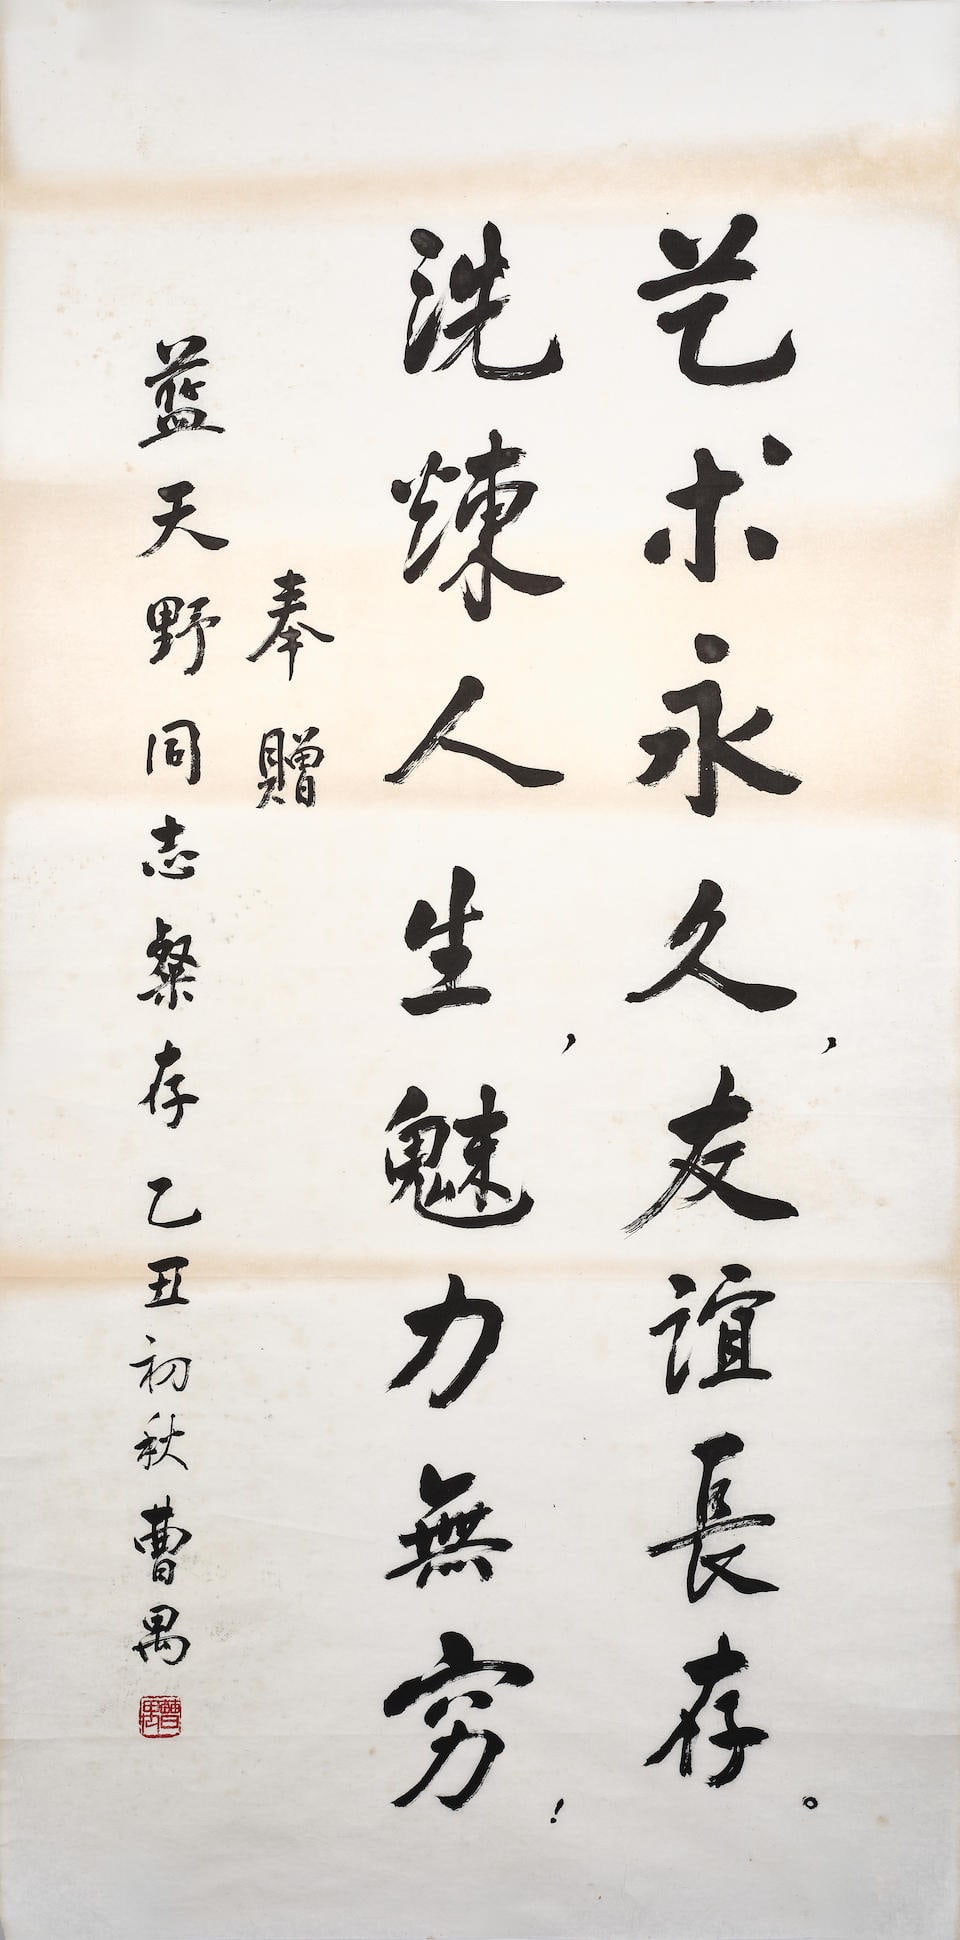 艺术永久，友谊長存。
洗煉人生，魅力無穷！
奉贈
蓝天野同志粲存乙丑初秋曹禺
曹禺